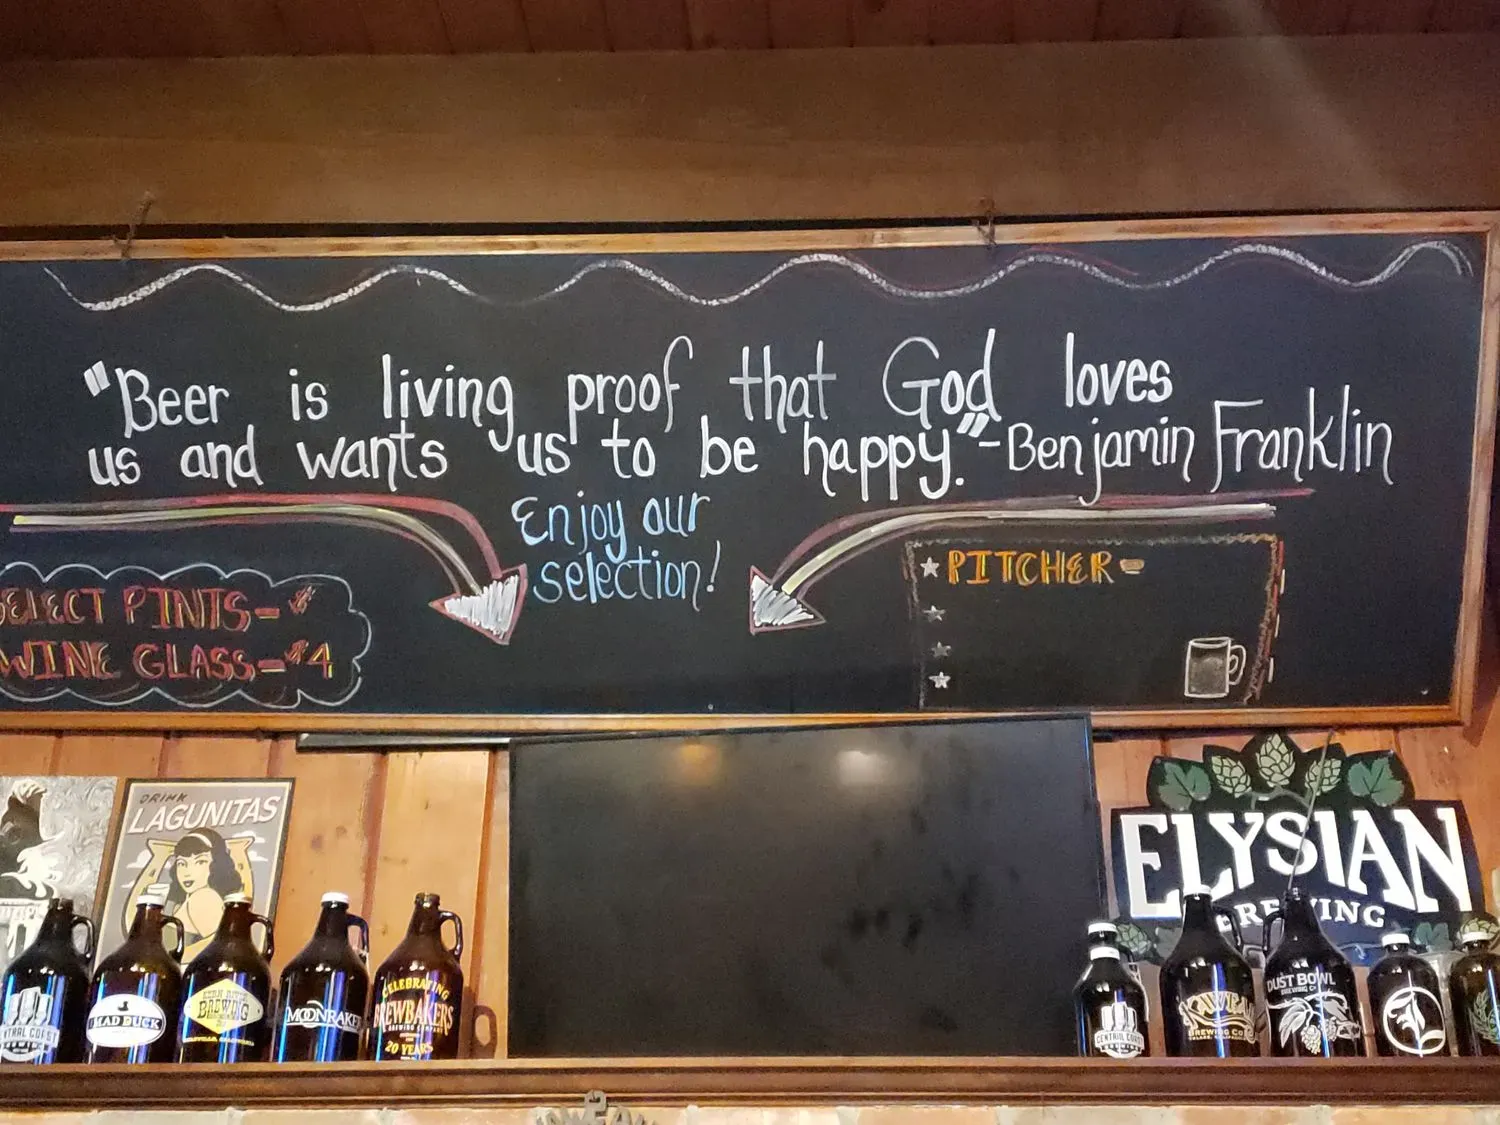 "Beer is living proof that God loves
us and wants us to be happy."-Benjamin Franklin
Enjoy our
selection!
SELECT PINTS-$
WINE GLASS-$4
PITCHER-
DRINK
LAGUNITAS
ELYSIAN
BREWING
MAD DUCK
KERN RIVER
BREWING
MOONRAKER
CELEBRATING
BREWBAKERS
BREWING COMPANY
20 YEARS
CENTRAL COAST
BREWING
BREWING CO
DUST BOWL
BREWING CO